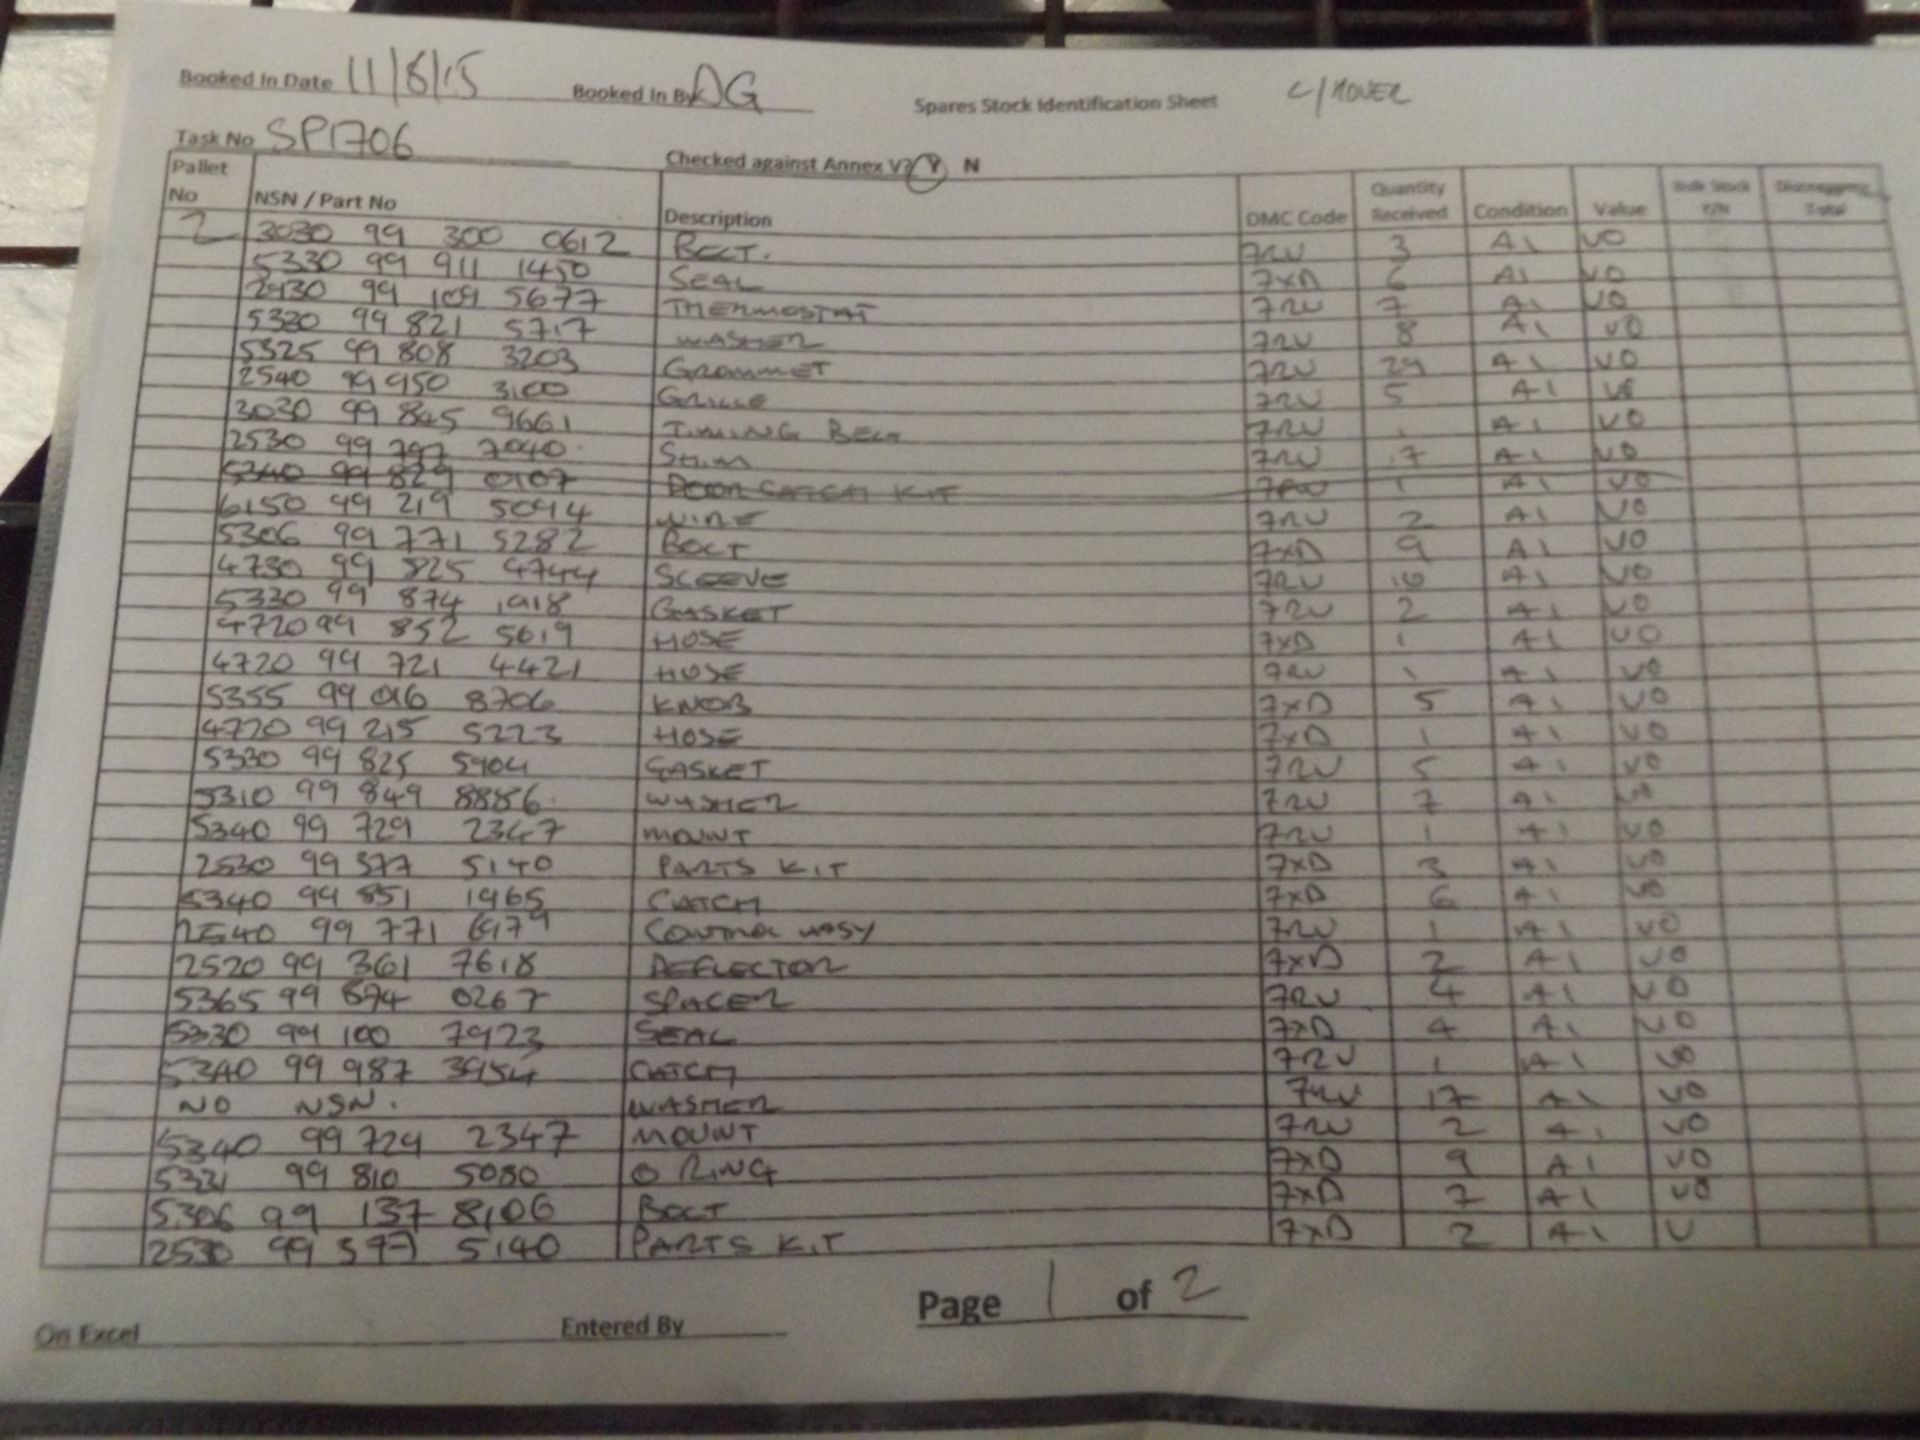 Booked In Date 11/8/15 Booked In By DG Spares Stock Identification Sheet C/MOVER
Task No SP1706 Checked against Annex V? Y N
Pallet No NSN / Part No Description DMC Code Quantity Received Condition Value Bulk Stock Y/N Discrepancy Total
2 3030 99 300 0612 BELT. 7RU 3 A1 V0
5330 99 911 1450 SEAL 7XD 6 A1 V0
2930 99 109 5677 THERMOSTAT 7RU 7 A1 V0
5330 99 821 5717 WASHER 7RU 8 A1 V0
5325 99 808 3203 GROMMET 7RU 29 A1 V0
2540 99 950 3100 GRILLE 7RU 5 A1 V0
3030 99 845 9661 TIMING BELT 7RU 1 A1 V0
2530 99 797 7040 SHIM 7RU 17 A1 V0
5340 99 829 0107 DOOR CATCH KIT 7RU 1 A1 V0
6150 99 219 5094 WIRE 7RU 2 A1 V0
5306 99 771 5282 BOLT 7XD 9 A1 V0
4730 99 825 4744 SLEEVE 7RU 10 A1 V0
5330 99 874 1918 GASKET 7RU 2 A1 V0
4720 99 852 5619 HOSE 7XD 1 A1 V0
4720 99 721 4421 HOSE 7RU 1 A1 V0
5355 99 016 8706 KNOB 7XD 5 A1 V0
4720 99 215 5223 HOSE 7XD 1 A1 V0
5330 99 825 5904 GASKET 7RU 5 A1 V0
5310 99 849 8886 WASHER 7RU 7 A1 V0
5340 99 729 2347 MOUNT 7RU 1 A1 V0
2530 99 377 5140 PARTS KIT 7XD 3 A1 V0
5340 99 851 1965 CATCH 7XD 6 A1 V0
2540 99 771 6979 7RU 1 A1 V0
2520 99 361 7618 DEFLECTOR 7XD 2 A1 V0
5365 99 874 0267 SPACER 7RU 4 A1 V0
5330 99 100 7923 SEAL 7XD 4 A1 V0
5340 99 987 3954 CATCH 7RU 1 A1 V0
NO NSN. WASHER 7RU 17 A1 V0
5340 99 729 2347 MOUNT 7RU 2 A1 V0
5331 99 810 5080 O RING 7XD 9 A1 V0
5306 99 137 8106 BOLT 7XD 7 A1 V0
2530 99 377 5140 PARTS KIT 7XD 2 A1 V
Page 1 of 2
On Excel Entered By